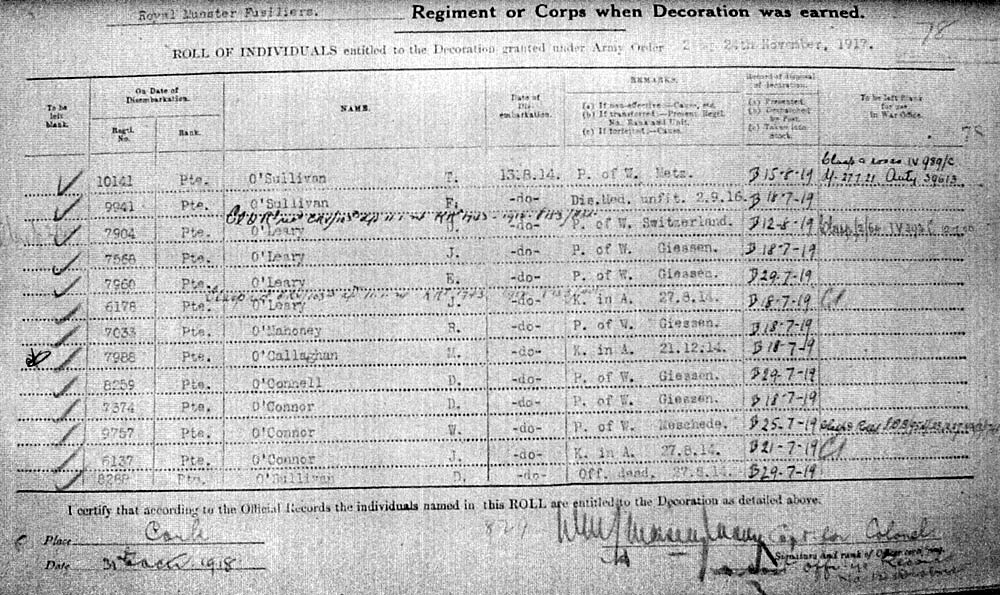 Royal Munster Fusiliers. Regiment or Corps when Decoration was earned.
78
ROLL OF INDIVIDUALS entitled to the Decoration granted under Army Order 24th November, 1917.
To be left blank.
On Date of Disembarkation.
Regtl. No.
Rank.
NAME.
Date of Disembarkation.
REMARKS.
(a) If non-effective—Cause, etc.
(b) If transferred:—Present Regtl. No. Rank and Unit.
(c) If forfeited:—Cause.
Record of disposal of decoration.
(a) Presented.
(b) Despatched by Post.
(c) Taken into stock.
To be left blank for use in War Office.
78
10141 Pte. O'Sullivan T. 13.8.14. P. of W. Metz. B 15-8-19 Clasp & roses IV 989/C
9941 Pte. O'Sullivan F. -do- Dis.Med. unfit. 2.9.16. B 18-7-19
7904 Pte. O'Leary -do- P. of W. Switzerland. B 12-8-19
7568 Pte. O'Leary J. -do- P. of W. Giessen. B 18-7-19
7960 Pte. O'Leary E. -do- P. of W. Giessen. B 29-7-19
6178 Pte. O'Leary J. -do- K. in A. 27.8.14. B 18-7-19 Cl
7033 Pte. O'Mahoney R. -do- P. of W. Giessen. B 18-7-19
7988 Pte. O'Callaghan M. -do- K. in A. 21.12.14. B 18-7-19
8259 Pte. O'Connell D. -do- P. of W. Giessen. B 29-7-19
7374 Pte. O'Connor D. -do- P. of W. Giessen. B 18-7-19
9757 Pte. O'Connor W. -do- P. of W. Meschede. B 25-7-19
6137 Pte. O'Connor J. -do- K. in A. 27.8.14. B 21-7-19 Cl
8268 Pte. O'Sullivan D. -do- Off. dead. 27.8.14. B 29-7-19
I certify that according to the Official Records the individuals named in this ROLL are entitled to the Decoration as detailed above.
Place Cork
829
Capt for Colonel
Date 1918.
Signature and rank of Officer